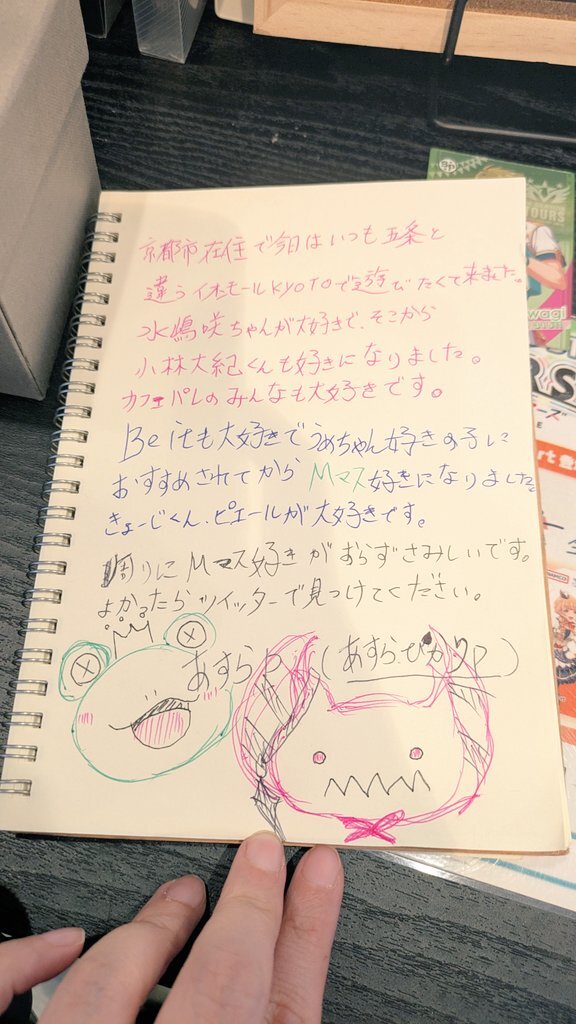 京都市在住で今日はいつも五条と
違うイオンモールKYOTOで遊びたくて来ました。
水嶋咲ちゃんが大好きで、そこから
小林大紀くんも好きになりました。
カフェパレのみんなも大好きです。
Beitも大好きでうめちゃん好きの子に
おすすめされてから Mマス好きになりました
きょーじくん、ピエールが大好きです。
周りに Mマス好きがおらずさみしいです。
よかったらツイッターで見つけてください。
あすらP (あすら・ぴかりP)
OURS
wagi